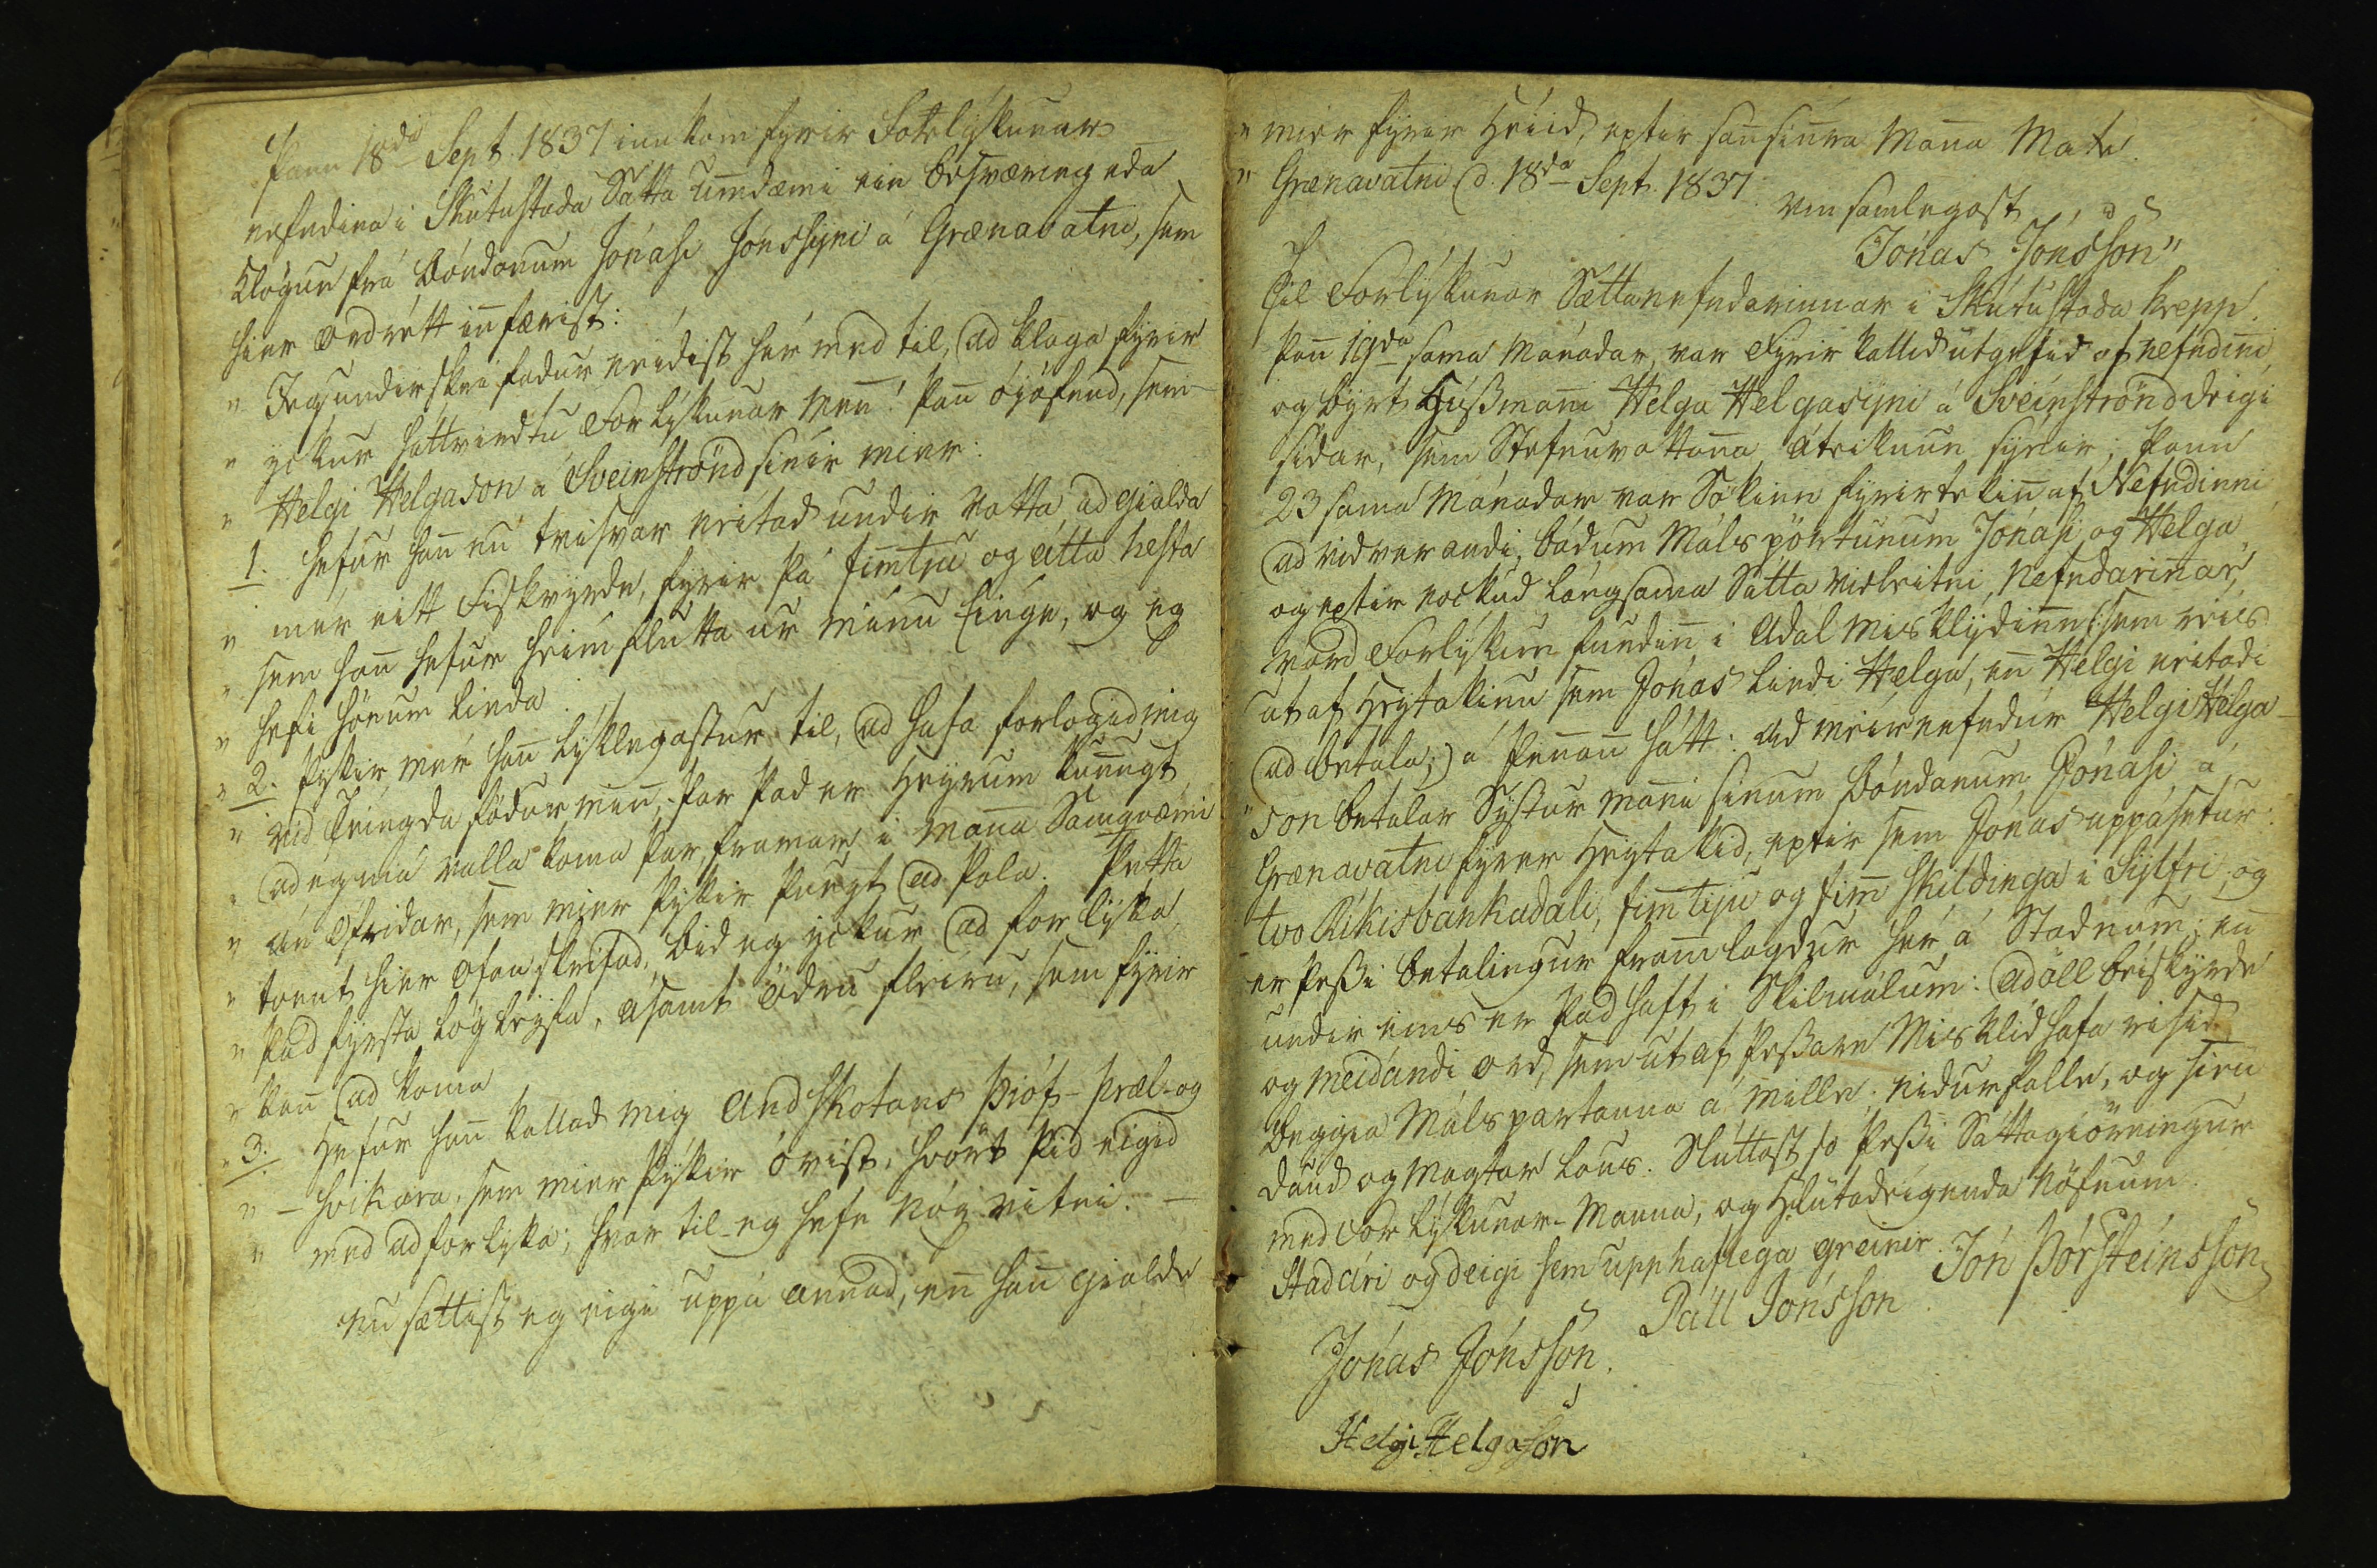 Þann 18da Sept. 1837 innkom fyrir Forlýkunar
nefndina i Skútustada Sátta umdæmi ein besværing eda
klögun frá bóndanum Jónasi Jónssyni á Grænavatni, sem
hier ordrétt innfærist:
" Jeg underskrifadur neidist hér med til, ad klaga fyrir
" yckur háttvirdtu Forlýkunar menn! þann ójöfnud, sem
" Helgi Helgason á Sveinströnd sínir mier.
1. Hefur hann nú trisvar neitad undir votta ad gialda
" mér eitt Fiskvyrde, fyrir þá fimtju og átta hesta
" sem hann hefur heim flutta úr mínu Einge, og eg
" hefi hönum lieda
" 2. Þykir mér hann lýklegastur til, ad hafa forlogid mig
" vid Teingdafödur minn, þar þad er Heyrum kunnugt
" ad eg má valla koma þar framar i manna Samqvæmi
" án Ofridar, sem mier þykir þungt ad þola. Þetta
" tvent hier ofanskrifad, bid eg yckur ad forlýka,
" þad fyrsta løgleyfa, ásamt ödru fleiru, sem fyrir
" kann ad koma
" 3. Hefur hann kallad mig Andskotans Þióf- þræl- og
" - hvikara, sem mier þýkir óvist, hvört þid eigid
" med ad forlyka; hvar til eg hefe nóg vitni. -
nú sættist eg eigi uppá annad, enn hann gialde
" mier fyrer Heiid, epter sannsinna manna Mate.
" Grænavatni d. 18da Sept. 1837.
vinsamlegast
Jónas Jónsson"
Til Forlýkunar Sættanefndarinnar i Skútustada hrepp.
Þann 19da sama Mánadar, var Fyrirkallid útgefid af nefndini
og byrt Hússmanni Helga Helgasyni á Sveinströnd deigi
sídar, sem Stefnuvottanna Áteiknun sýnir; Þann
23 sama Mánadar var Sökinn fyrirtekinn af Nefndinni
ad vidverandi, bádum Málspörtunum Jónasi og Helga,
og eptir nockud lángsama Sátta vidleitni, Nefndarinnar,
vard Forlýkun fundinn i Adal misklýdinni (: sem reis
út af Heytakinu sem Jónas liedi Helga, enn Helgi neitadi
ad betala;) á þennann hátt: ad meirnefndur Helgi Helga-
"son betalar Systur manni sínum Bóndanum Jónasi á
Grænavatni fyrer Heytakid, eptir sem Jónas uppásetur:
tvo Ríkisbankadali, fimtíju og fimm skildinga i Sylfri; og
er þessi betalingur framlagdur hér á Stadnum; enn
undir eins er þad haft i Skilmálum: ad öll beiskyrde
og meidandi ord, sem út af þessare Misklid hafa risid
beggia Málspartanna á mille; nidurfalle, og sieu
daud og magtar laus. Sluttast so þessi Sáttagiörningur
med Forlýkunar-Manna, og Hlutadeigenda Nöfnum.
Stad ári og deigi sem upphaflega greiner. Jón Þórsteinsson
Páll Jónsson
Jónas Jónsson.
Helgi Helgason